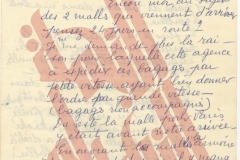 Encore moi au sujet
des 2 malls qui viennent d'arriver
pensez 21 jours en route !
Je me demande de plus la rai-
son pour laquelle cette agence
a expédier ces bagages par
petite vitesse ayant bien donner
l'ordre par grande vitesse
(bagages non accompagnés)
la malle pour Paris
y était avant notre arrivée
En ouvrant les malles